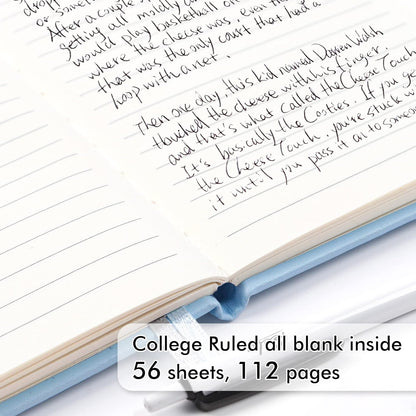 or
After a couple
getting all mildly a
would play basketball on
where the cheese was, even
that was the only court that had a
loop with a net.
Then one day, this kid named Darren Walsh
touched the cheese with his finger,
and that's what called the Cheese Touch.
It's basically the Cooties. If you get
the Cheese Touch, you're stuck w
it until you pass it on to someo
College Ruled all blank inside
56 sheets, 112 pages